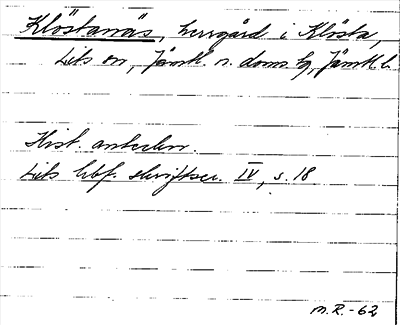 Klöstanäs, herrgård i Klösta,
Lits sn, Jämtl. n. doms. tg, Jämtl. l.
Hist. anteckn.
Lits hbf. skriftser. IV, s. 18
M.R.-62